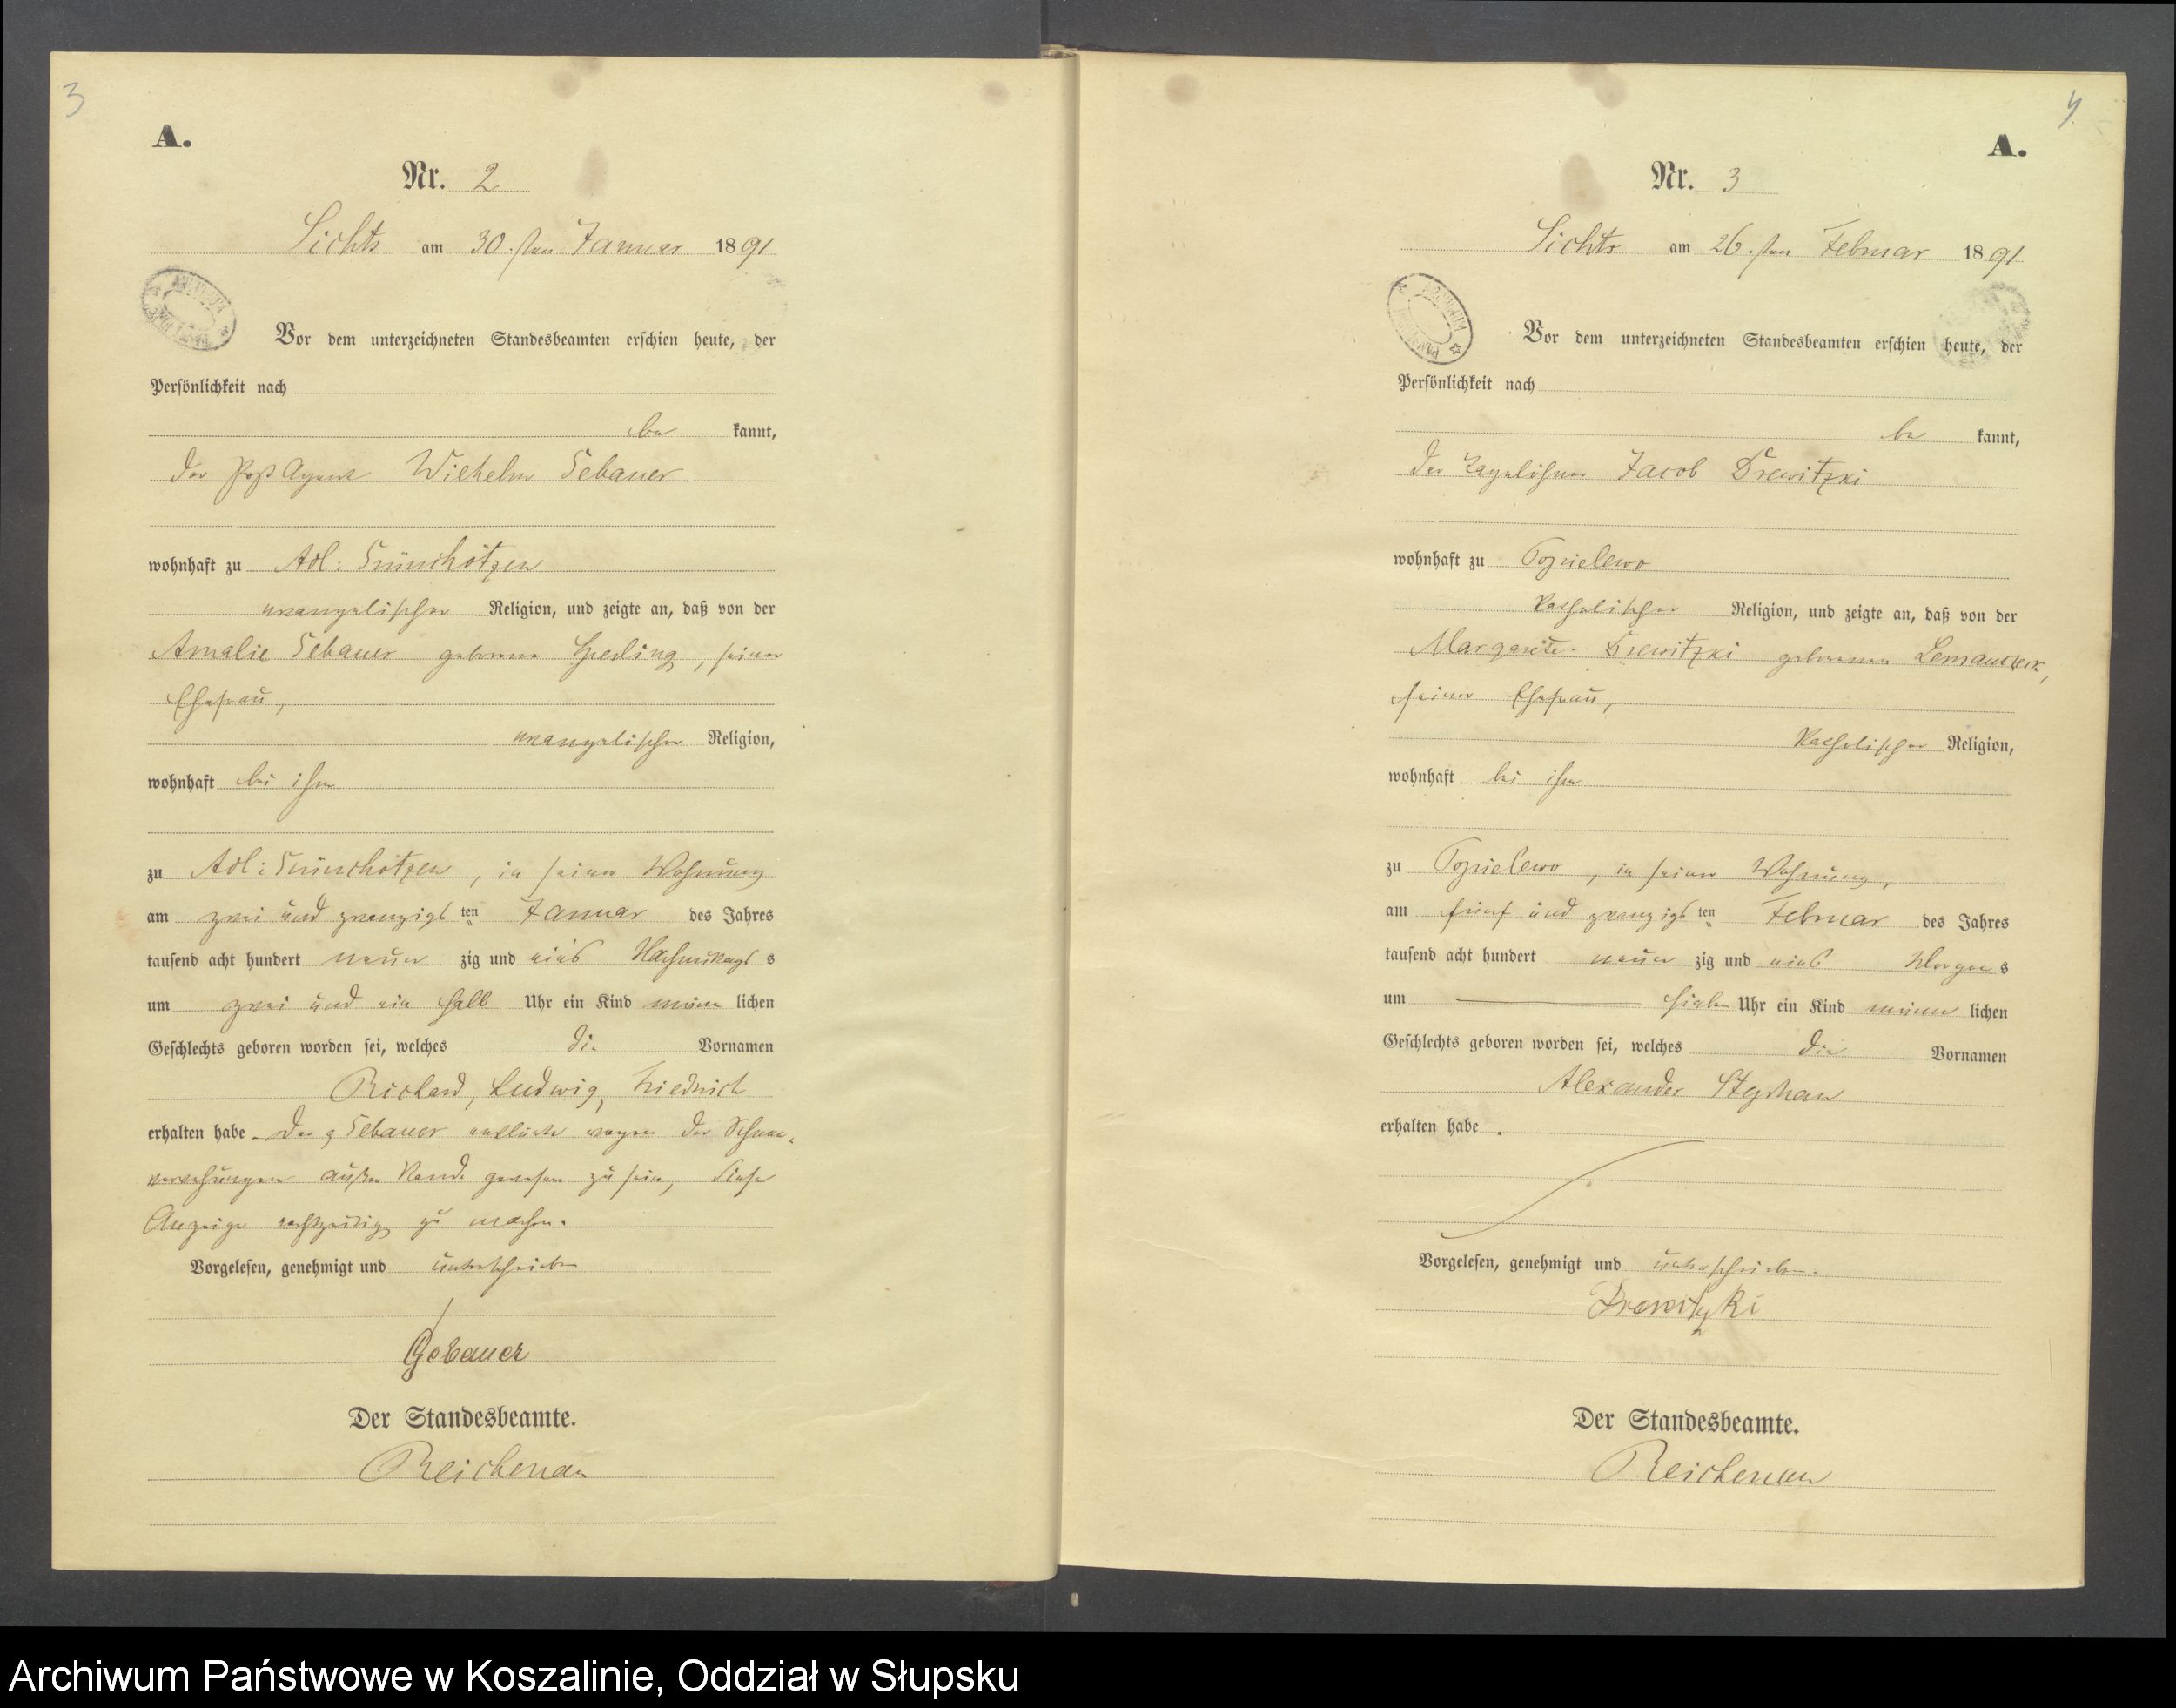 3
A.
Nr. 2
Sichts am 30. ten Januar 1891
Vor dem unterzeichneten Standesbeamten erschien heute, der
Persönlichkeit nach
be kannt,
der Post Agent Wilhelm Gebauer
wohnhaft zu Adl: Grünchotzen
evangelischer Religion, und zeigte an, daß von der
Amalie Gebauer geborene , seiner
Ehefrau,
evangelischer Religion,
wohnhaft bei ihm
zu Adl: Grünchotzen, in seiner Wohnung
am zwei und zwanzigsten Januar des Jahres
tausend acht hundert neun zig und eins Nachmittags
um zwei und ein halb Uhr ein Kind männ lichen
Geschlechts geboren worden sei, welches die Vornamen
Richard, Ludwig, Friedrich
erhalten habe. Der Gebauer erklärte wegen der Schnee-
verwehungen außer Stande gewesen zu sein, diese
Anzeige rechtzeitig zu machen.
Vorgelesen, genehmigt und unterschrieben
Gebauer
Der Standesbeamte.
Reichenau
4
A.
Nr. 3
Sichts am 26. ten Februar 1891
Vor dem unterzeichneten Standesbeamten erschien heute, der
Persönlichkeit nach
be kannt,
der Tagelöhner Jacob Drewitzki
wohnhaft zu Topielewo
katholischer Religion, und zeigte an, daß von der
Margarete Drewitzki geborenen ,
seiner Ehefrau,
katholischer Religion,
wohnhaft bei ihm
zu Topielewo, in seiner Wohnung,
am fünf und zwanzigsten Februar des Jahres
tausend acht hundert neun zig und eins Morgens
um sieben Uhr ein Kind männ lichen
Geschlechts geboren worden sei, welches die Vornamen
Alexander Stephan
erhalten habe.
Vorgelesen, genehmigt und unterschrieben.
Drewitzki
Der Standesbeamte.
Reichenau
Archiwum Państwowe w Koszalinie, Oddział w Słupsku